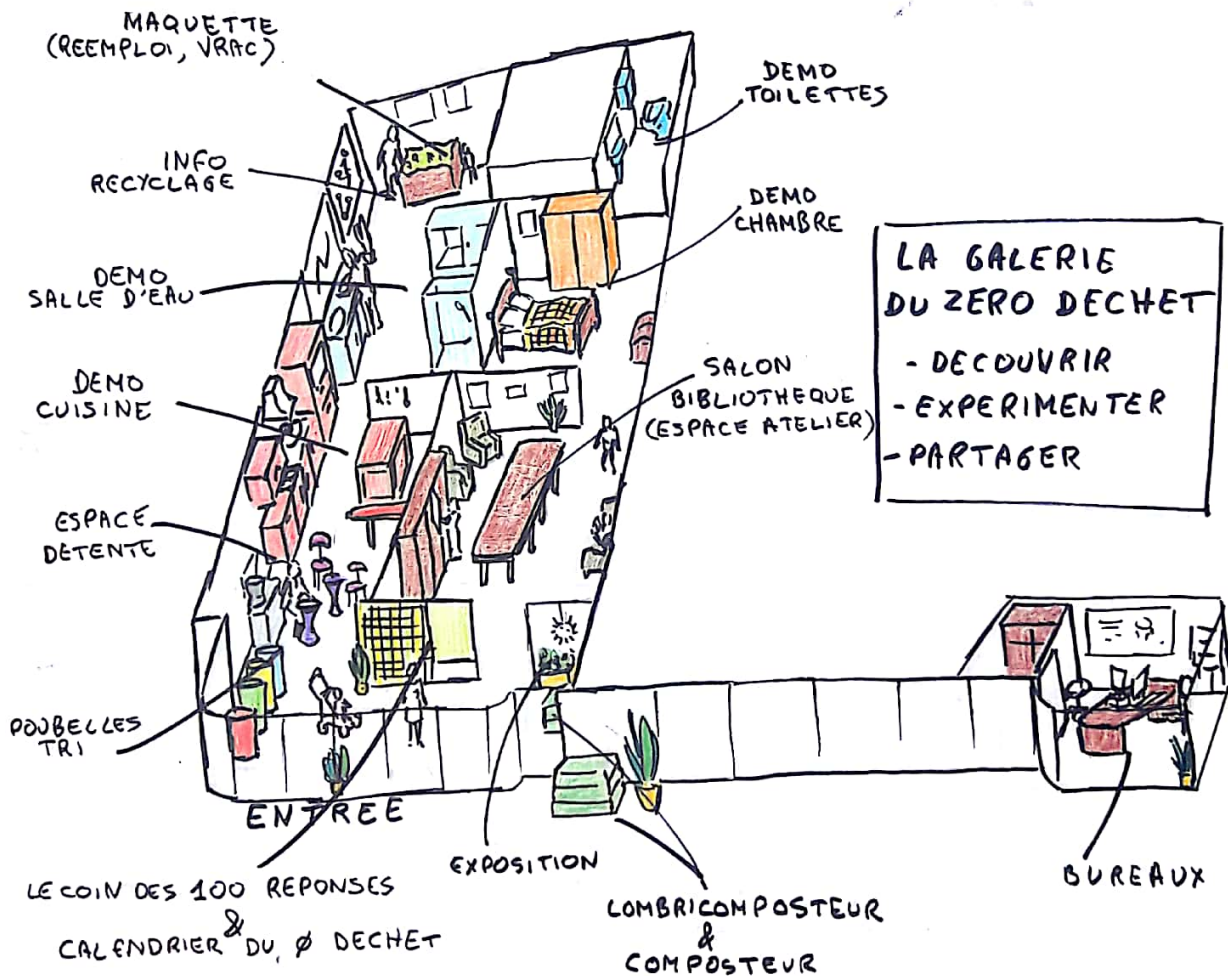 MAQUETTE
(REEMPLOI, VRAC)
DEMO
TOILETTES
INFO
RECYCLAGE
DEMO
CHAMBRE
LA GALERIE
DU ZERO DECHET
- DECOUVRIR
- EXPERIMENTER
- PARTAGER
DEMO
SALLE D'EAU
SALON
BIBLIOTHEQUE
(ESPACE ATELIER)
DEMO
CUISINE
ESPACE
DETENTE
POUBELLES
TRI
ENTREE
EXPOSITION
BUREAUX
LE COIN DES 100 REPONSES
&
CALENDRIER DU Ø DECHET
LOMBRICOMPOSTEUR
&
COMPOSTEUR